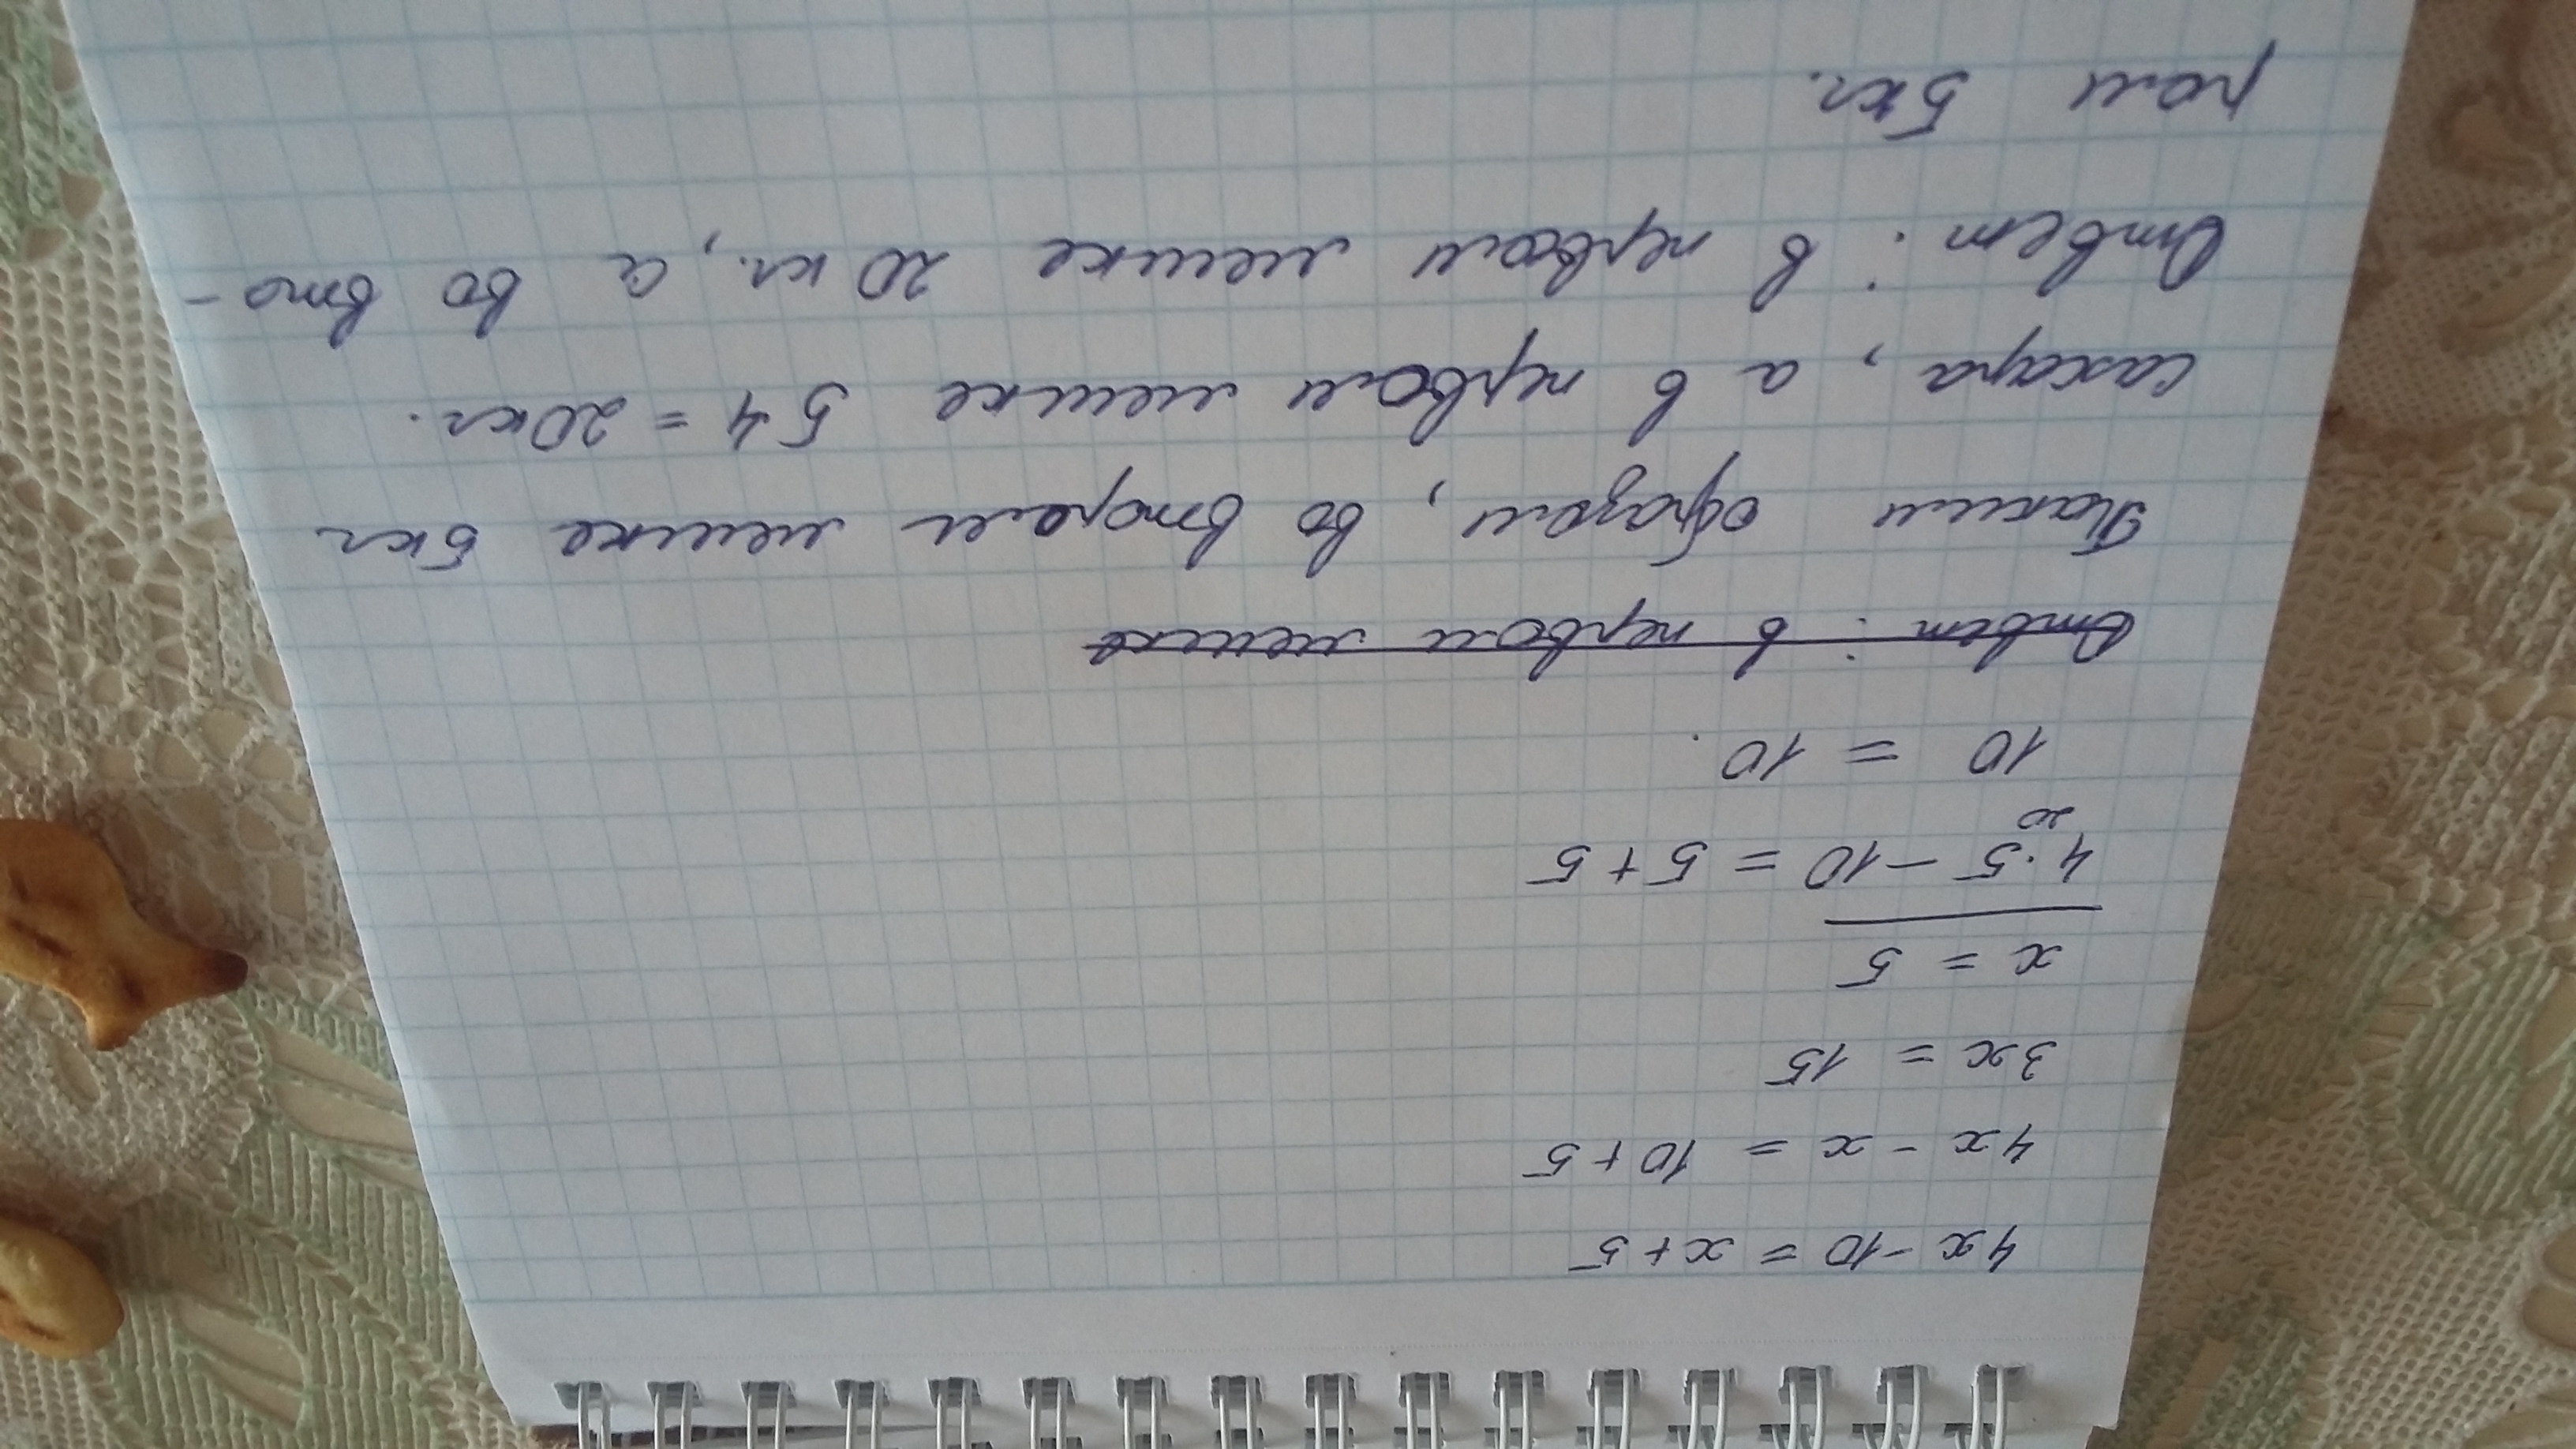 4x - 10 = x + 5
4x - x = 10 + 5
3x = 15
x = 5
4·5 - 10 = 5 + 5
20
10 = 10.
Ответ: в первом мешке
Таким образом, во втором мешке 5кг
сахара, а в первом мешке 5 4 = 20кг.
Ответ: в первом мешке 20 кг., а во вто-
ром 5кг.